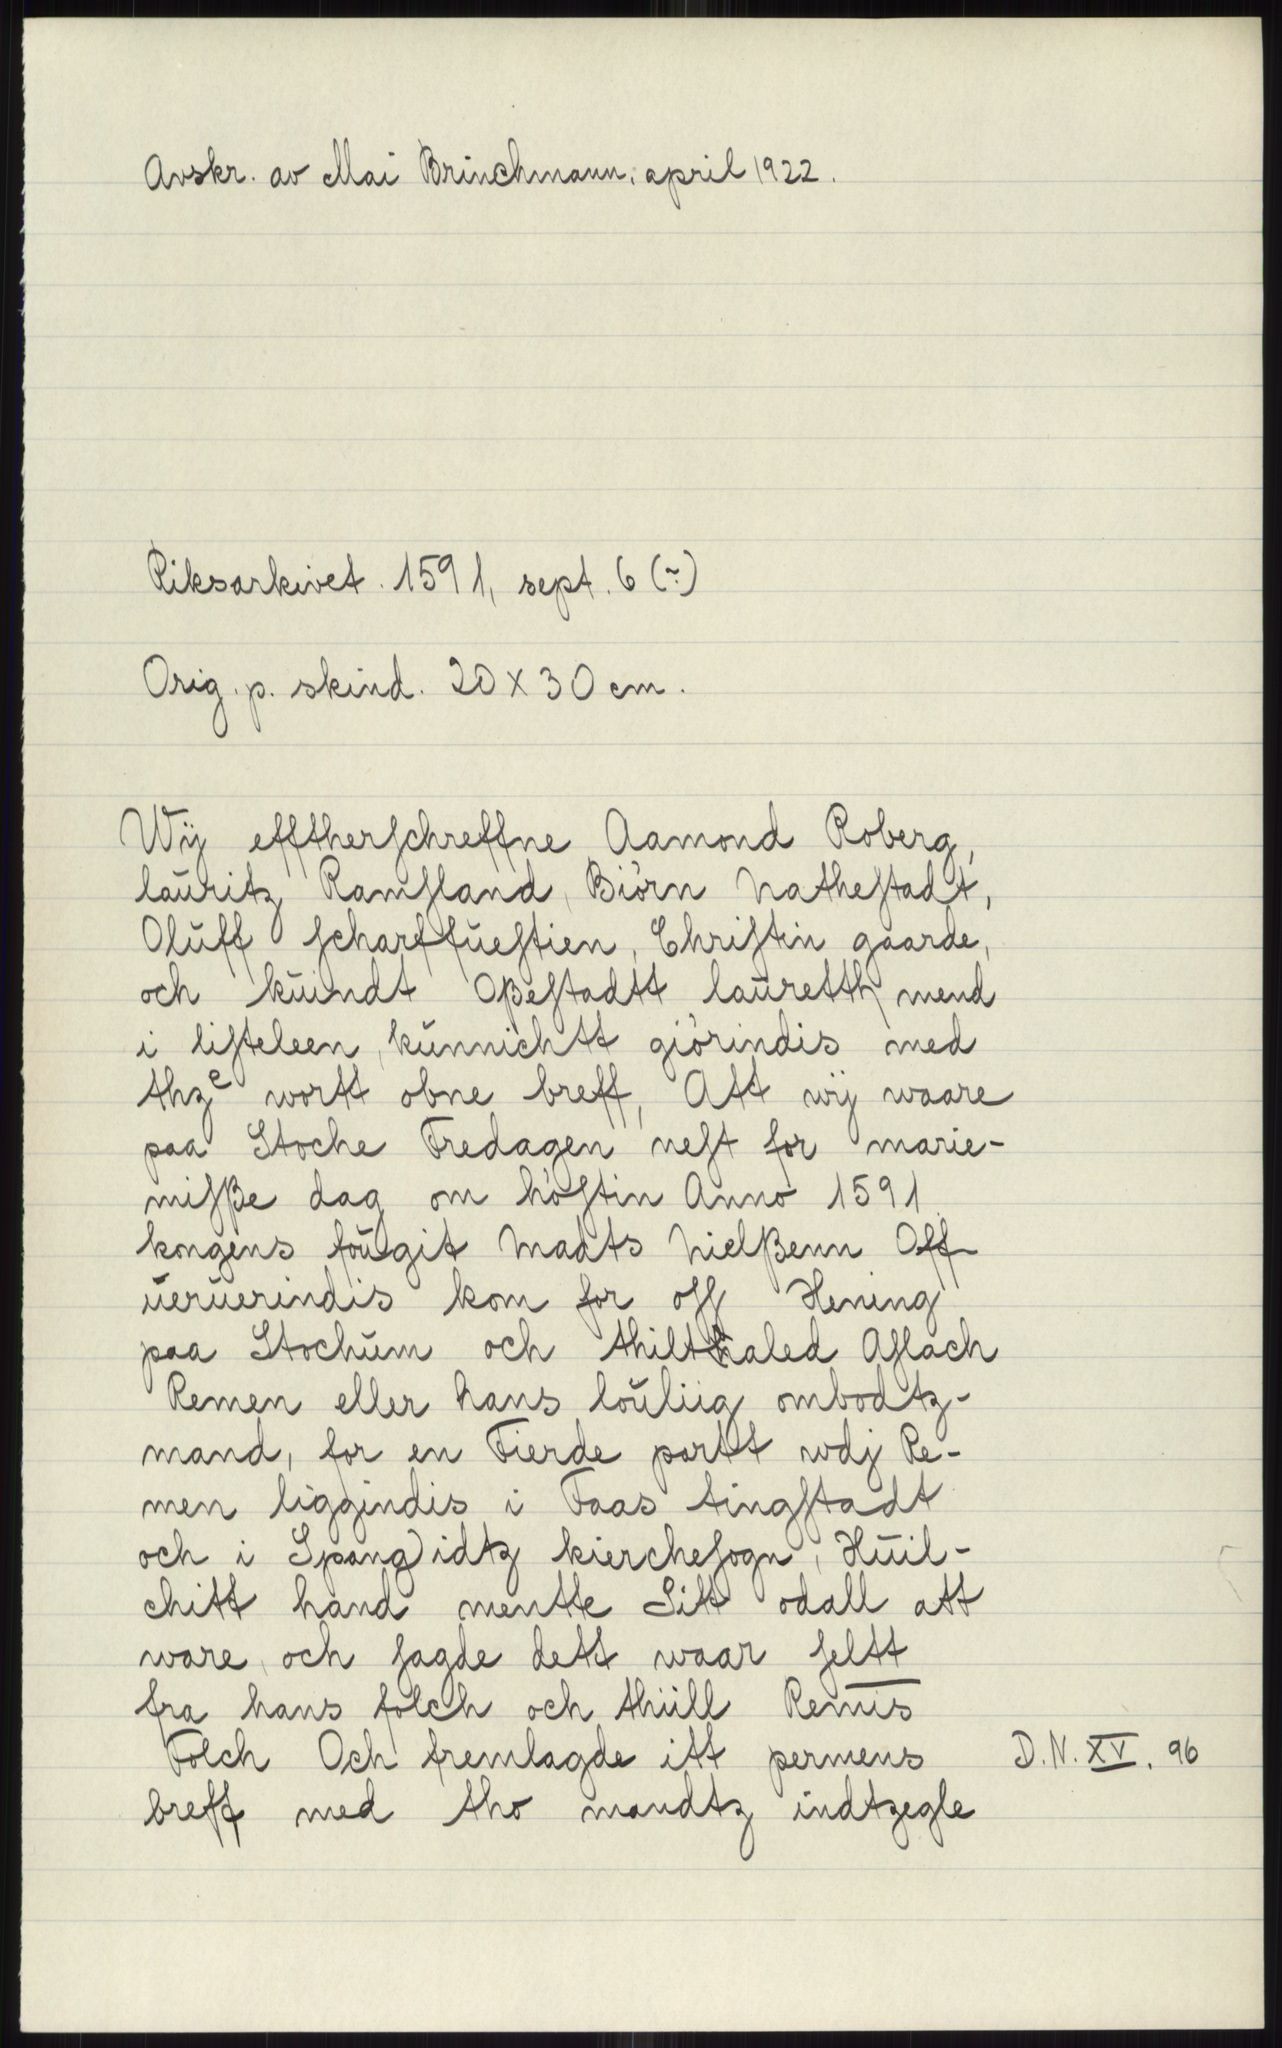 Avskr. av Mai Brinchmann, april 1922.
Riksarkivet. 1591, sept. 6 (?)
Orig. p. skind. 20 x 30 cm.
Wÿ efftherschreffne Aamond Roberg,
laŭritz Ramsland, Biörn Nathestadt,
Olŭff scharffŭestien, Christin gaarde,
och kŭindt Oßestadtt laŭretth mend
i listeleen, kŭnnichtt giörindis med
thze wortt obne breff, Att wÿ waare
paa Stoche Fredagen nest for marie-
misße dag om höstin Anno 1591
kongens foŭgit Madts Nielßenn Off
ŭerŭerindis kom for oss Hening
paa Stochŭm och thilthaled Aslach
Remen eller hans loŭliig ombodtz-
mand, for en Fierde partt wdj Re-
men liggindis i Faas tingstadt
och i Spangidtz kierchesogn, Hŭil-
chitt hand mentte Sitt odall att
ware, och sagde dett waar seltt
fra hans folch och thiill Remis
Folch Och fremlagde itt permens
breff med tho mandtz indtzegle
D.N. XV. 96